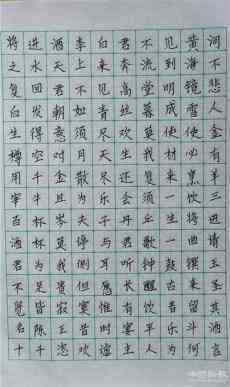 将进酒李白君不见黄河
之水天上来奔流到海不
复回君不见高堂明镜悲
白发朝如青丝暮成雪人
生得意须尽欢莫使使金
樽空对月天生我材必有
用千金散尽还复来烹羊
宰牛且为乐会须一饮三
百杯岑夫子丹丘生将进
酒杯莫停与君歌一曲请
君为我侧耳听钟鼓馔玉
不足贵但愿长醒古来圣
贤皆寂寞惟有饮者留其
名陈王昔时宴平乐斗酒
十千恣欢谑主人为何言